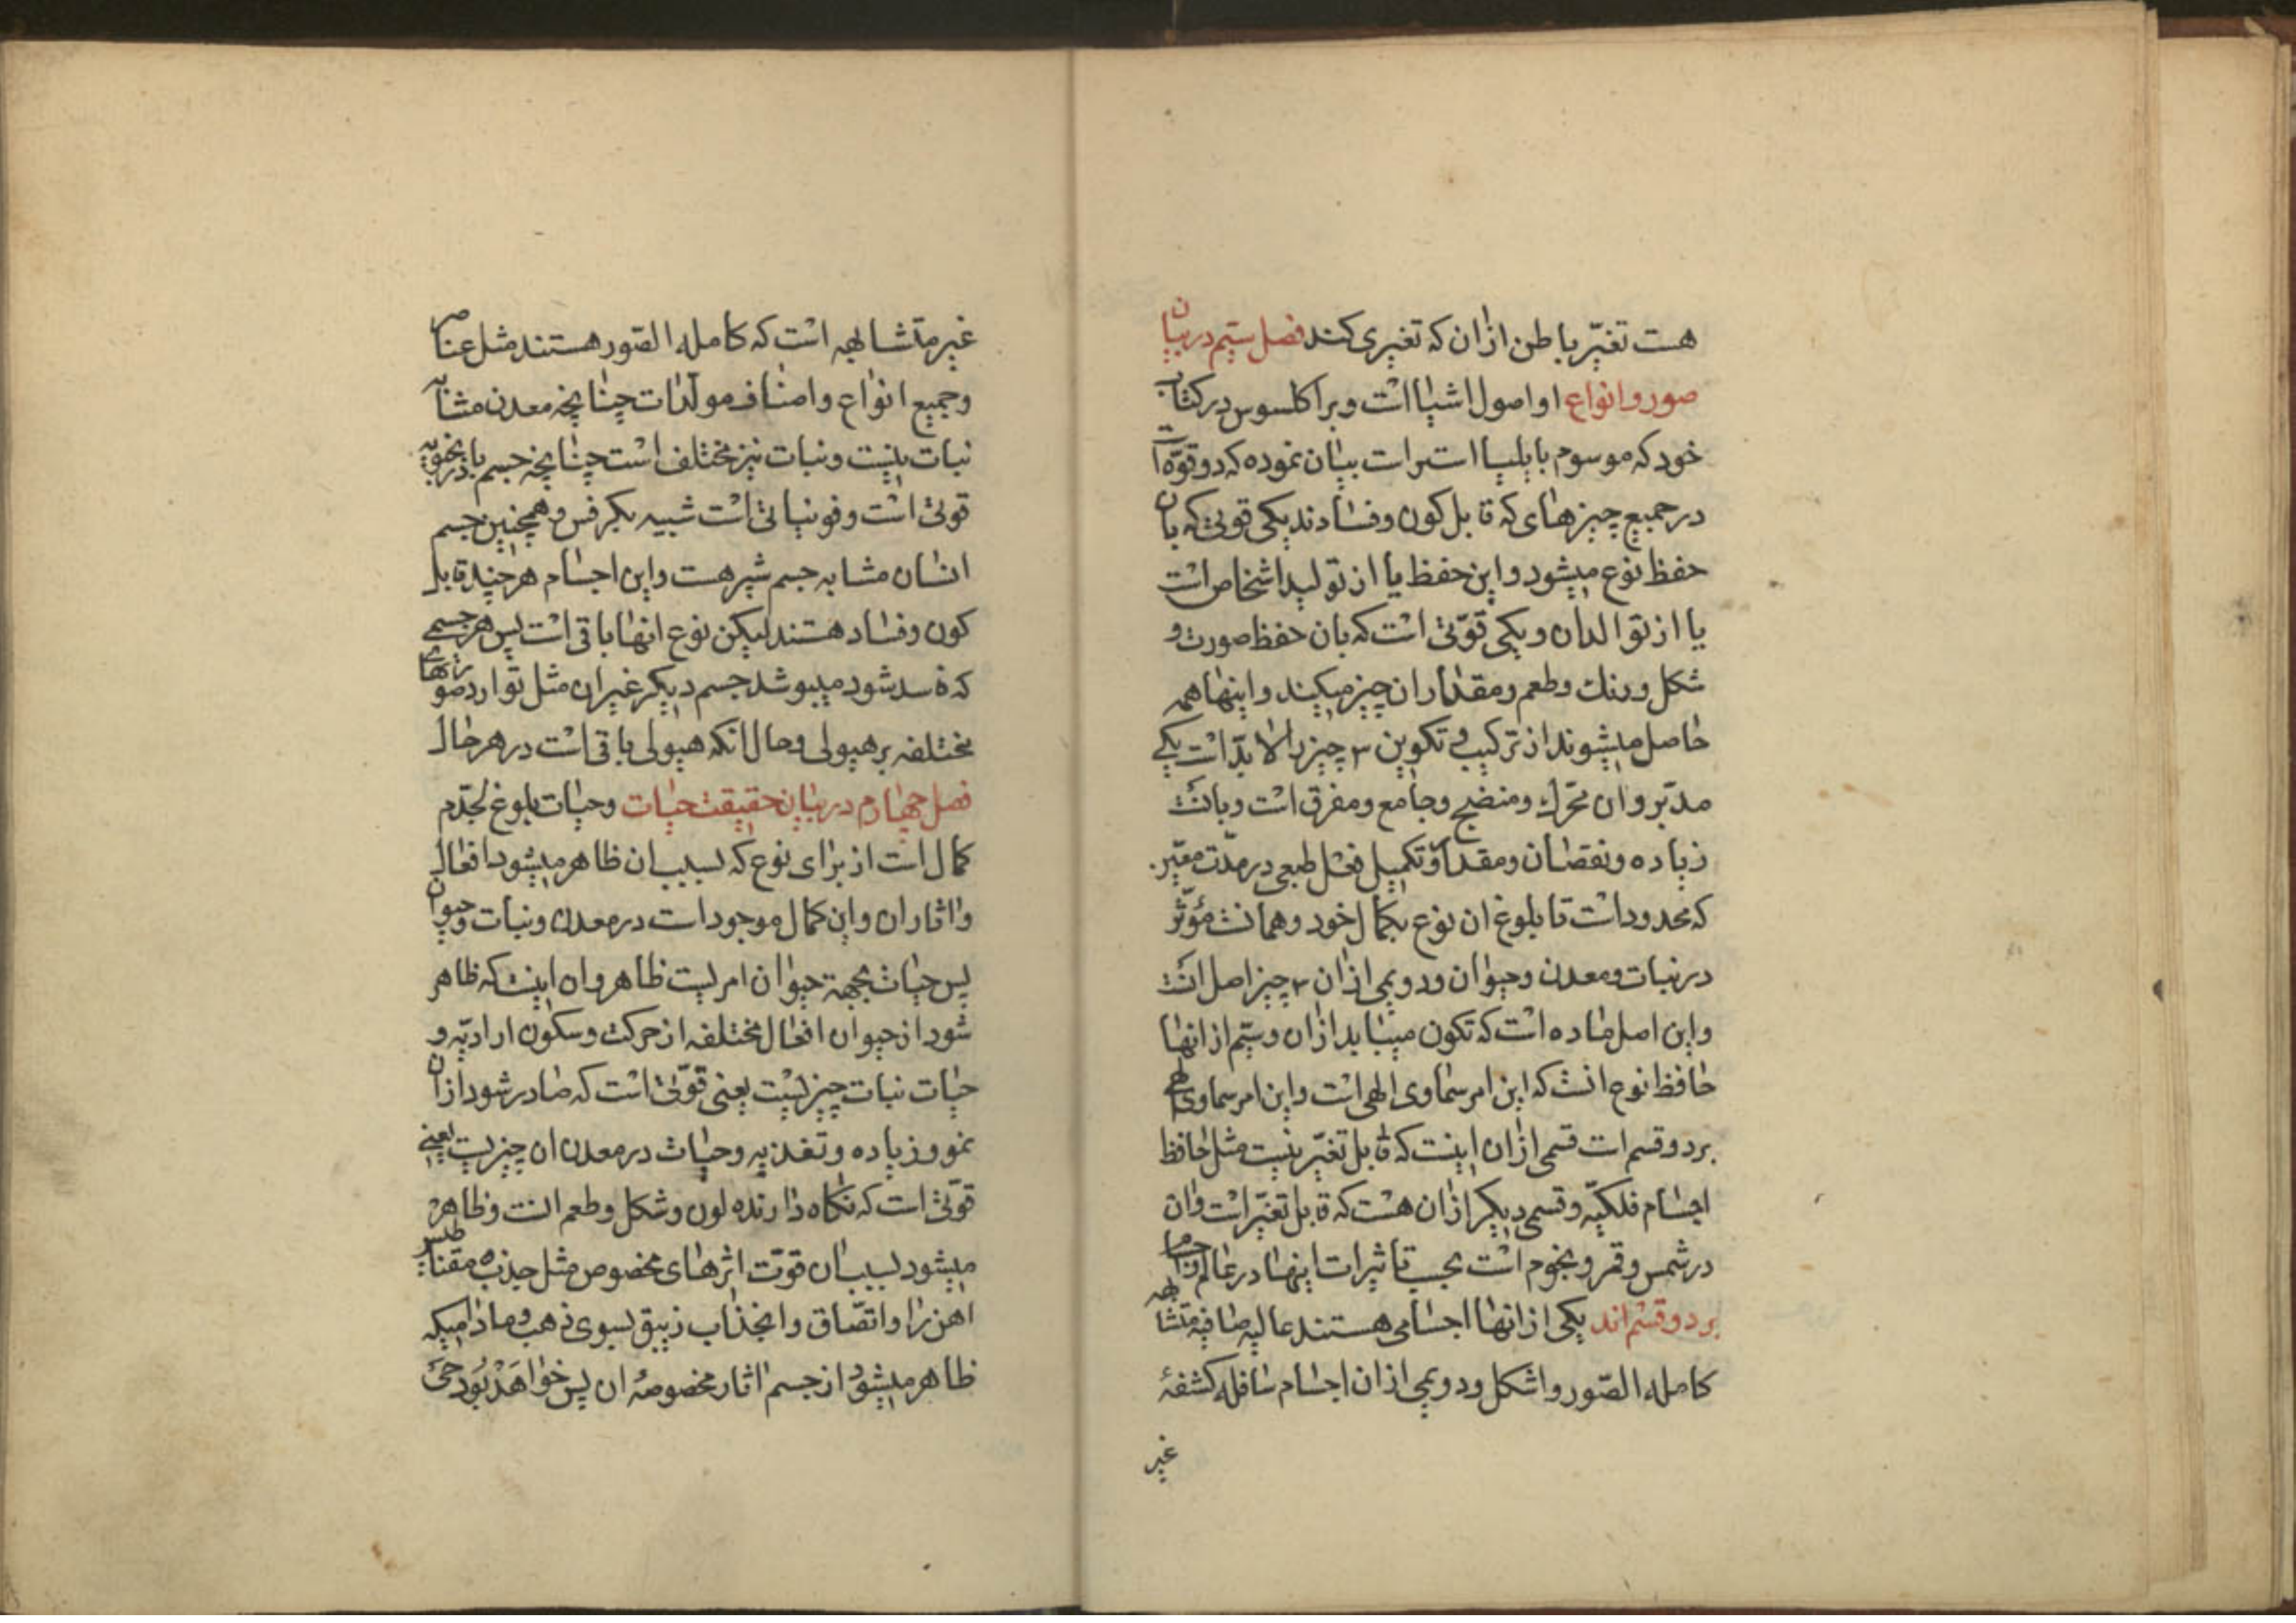 هست تغیّر باطن ازان که تغیری کند فصل سیّم در بیان
صور و انواع او اصول اشیا است و براکلسوس در کتاب
خود که موسوم بابلیسا است بیان نموده که دو قوّة است
در جمیع چیزهای که قابل کون و فسادند یکی قوتی که بان
حفظ نوع میشود و این حفظ یا از تولید اشخاص است
یا از توالدان و یکی قوّتی است که بان حفظ صورت و
شکل و رنك و طعم و مقدار ان چیز میکند و اینها همه
حاصل میشوند از ترکیب و تکوین ۳ چیز را لا بدّ است یکی
مدبّر و ان محرّك و منضج و جامع و مفرق است و بانست
زیاده و نقصان و مقدار و تکمیل فعل طبعی در مدّت معیّن
که محدود است تا بلوغ ان نوع بکمال خود و همانست مؤثّر
در نبات و معدن و حیوان و دویمی ازان ۳ چیز اصل است
و این اصل ماده است که تکون مییابد ازان و سیّم از انها
حافظ نوع انست که این امر سماوی الهی است و این امر سماوی الهی
بر دو قسم است قسمی ازان اینست که قابل تغیّر نیست مثل حافظ
اجسام فلکیّه و قسمی دیکر ازان هست که قابل تغیّر است و ان
در شمس و قمر و نجوم است بحسب تاثیرات اینها در عالم و اجسام
بر دو قسم اند یکی از انها اجسامی هستند عالیه صافیه متشابهه
کامله الصّور و اشکل و دویمی ازان اجسام سافله کشفهٔ
غیر
غیر متشابهه است که کامله الصّور هستند مثل عناصر
و جمیع انواع و اصناف مولّدات چنانچه معدن مشابه
نبات نیست و نبات نیز مختلف است چنانچه جسم بادرنجبویه
قوتی است و فو نباتی است شبیه بکرفس و همچنین جسم
انسان مشابه جسم شیر هست و این اجسام هر چند قابل
کون و فساد هستند لیکن نوع انها باقی است پس هر جسمی
که فاسد شود میپوشد جسم دیکر غیر ان مثل توارد صورتهای
مختلفه بر هیولی و حال انکه هیولی باقی است در هر حال
فصل چهارم در بیان حقیقت حیات و حیات بلوغ بحدّم
کمال است از برای نوع که بسبب ان ظاهر میشود افعال
و اثار ان و این کمال موجود است در معدن و نبات و حیوان
پس حیات بجهة حیوان امریست ظاهر و ان اینست که ظاهر
شود از حیوان افعال مختلفه از حرکت و سکون ارادیّه و
حیات نبات چیزیست یعنی قوّتی است که صادر شود ازان
نمو و زیاده و تغذیه و حیات در معدن ان چیزیست یعنی
قوّتی است که نکاه دارنده لون و شکل و طعم انست و ظاهر
میشود بسبب ان قوّت اثرهای مخصوص مثل جذب مقناطیس
اهن را و اتصّاق و انجذاب زیبق بسوی ذهب و مادامیکه
ظاهر میشود از جسم اثار مخصوصهٔ ان پس خواهد بود حیّ